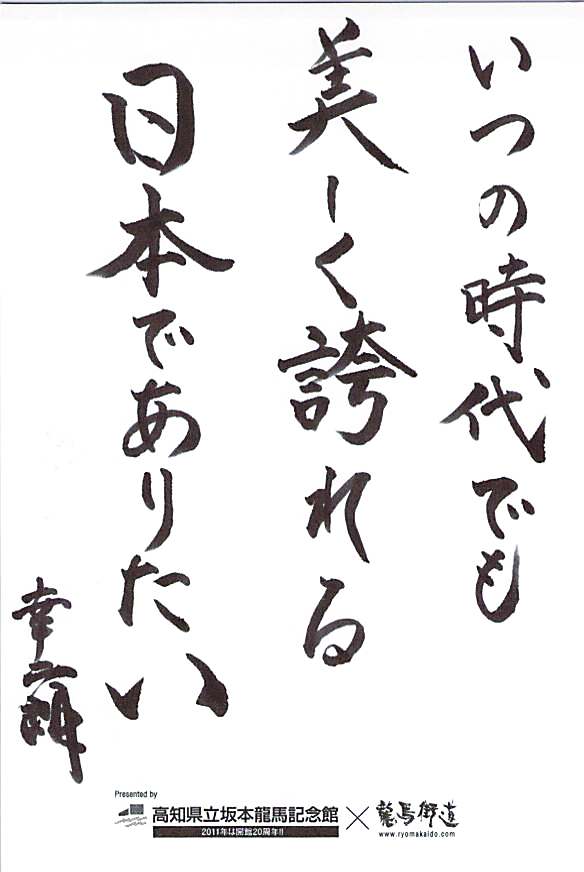 いつの時代でも
美しく誇れる
日本でありたい
Presented by
高知県立坂本龍馬記念館×龍馬街道
2011年は開館20周年!!
www.ryomakaido.com